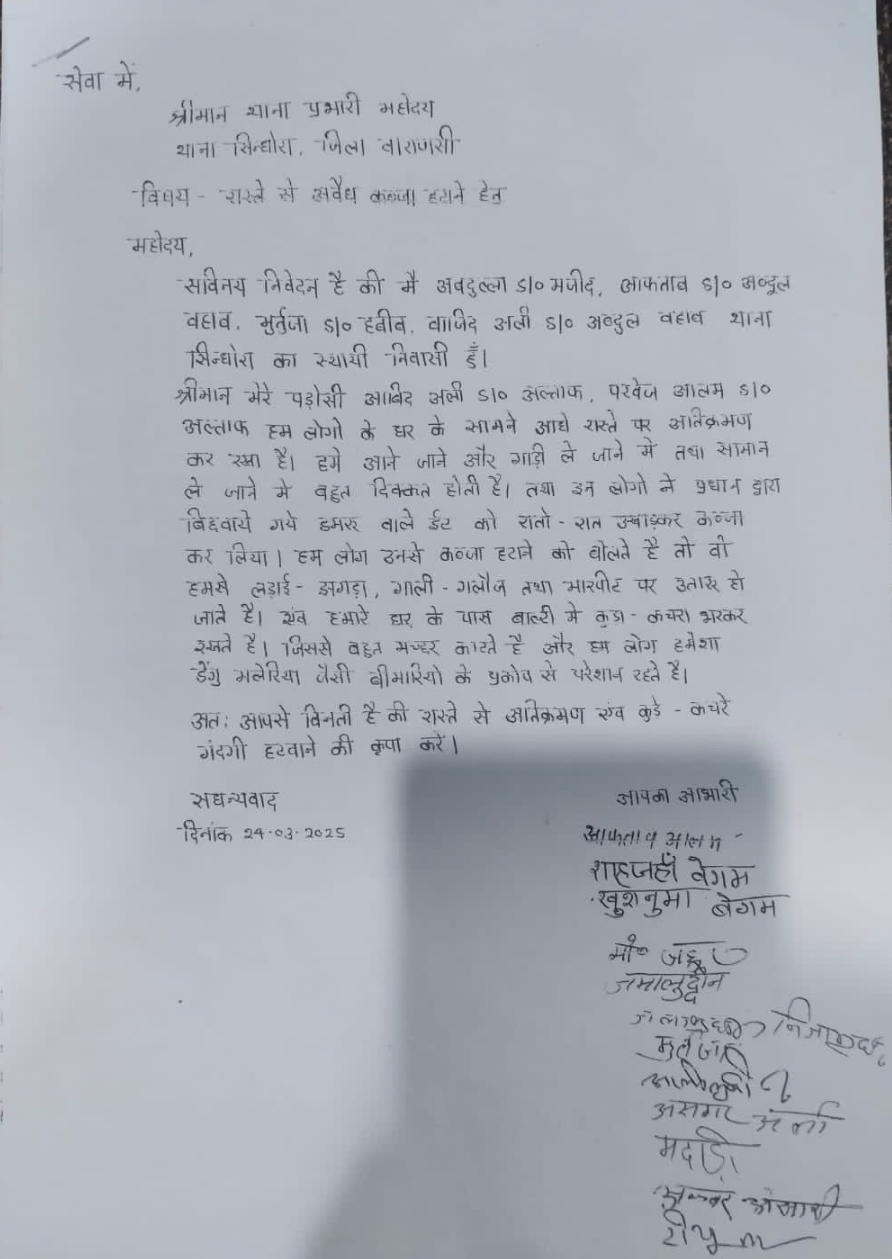 सेवा में,
श्रीमान थाना प्रभारी महोदय
थाना सिन्धोरा, जिला वाराणसी
विषय - रास्ते से अवैध कब्जा हटाने हेतु
महोदय,
सविनय निवेदन है की मै अबदुल्ला S/० मजीद, आफताब S/० अब्दुल
वहाब, मुर्तुजा S/० हबीब, वाजिद अली S/० अब्दुल वहाब थाना
सिन्धोरा का स्थायी निवासी हूँ।
श्रीमान मेरे पड़ोसी आबिद अली S/० अल्ताफ, परवेज आलम S/०
अल्ताफ हम लोगो के घर के सामने आधे रास्ते पर अतिक्रमण
कर रखा है। हमे आने जाने और गाड़ी ले जाने मे तथा सामान
ले जाने मे बहुत दिक्कत होती है। तथा इन लोगो ने प्रधान द्वारा
बिछवाये गये डमरू वाले ईट को रातो-रात उखाड़कर कब्जा
कर लिया। हम लोग उनसे कब्जा हटाने को बोलते है तो वो
हमसे लड़ाई-झगड़ा, गाली-गलौज तथा मारपीट पर उतारू हो
जाते है। एंव हमारे घर के पास बाल्टी मे कुड़ा-कचरा भरकर
रखते है। जिससे बहुत मच्छर काटते है और हम लोग हमेशा
डेंगु मलेरिया जैसी बीमारियो के प्रकोप से परेशान रहते है।
अत: आपसे विनती है की रास्ते से अतिक्रमण एंव कुड़े-कचरे
गंदगी हटवाने की कृपा करें।
सधन्यवाद
दिनांक 24-03-2025
आपका आभारी
आफताब आलम
शाहजहाँ बेगम
खुशनुमा बेगम
मो०
जमालुद्दीन
मुर्तुजा
असगर अली
मदाड़ी
अकबर अंसारी